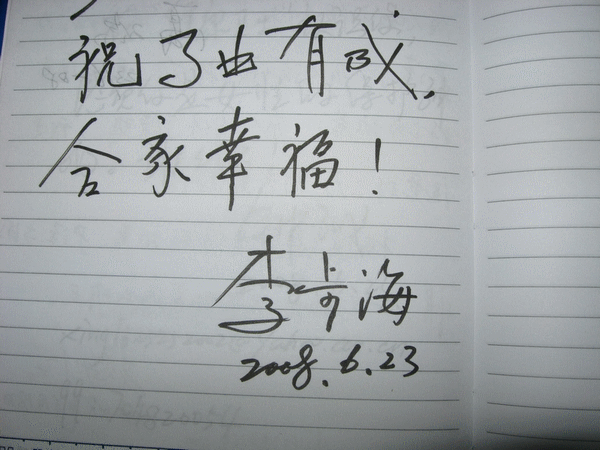 祝了由有成,
合家幸福!
李 海
2008.6.23